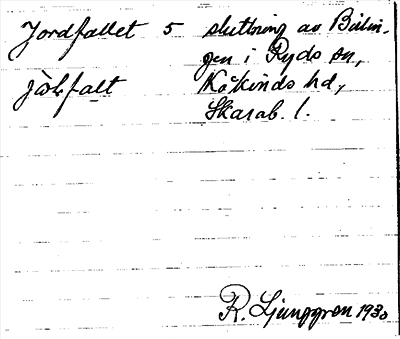 Jordfallet 5 sluttning av Billin-
gen i Ryds sn,
Kåkinds hd,
Skarab. l.
R. Ljunggren 1930